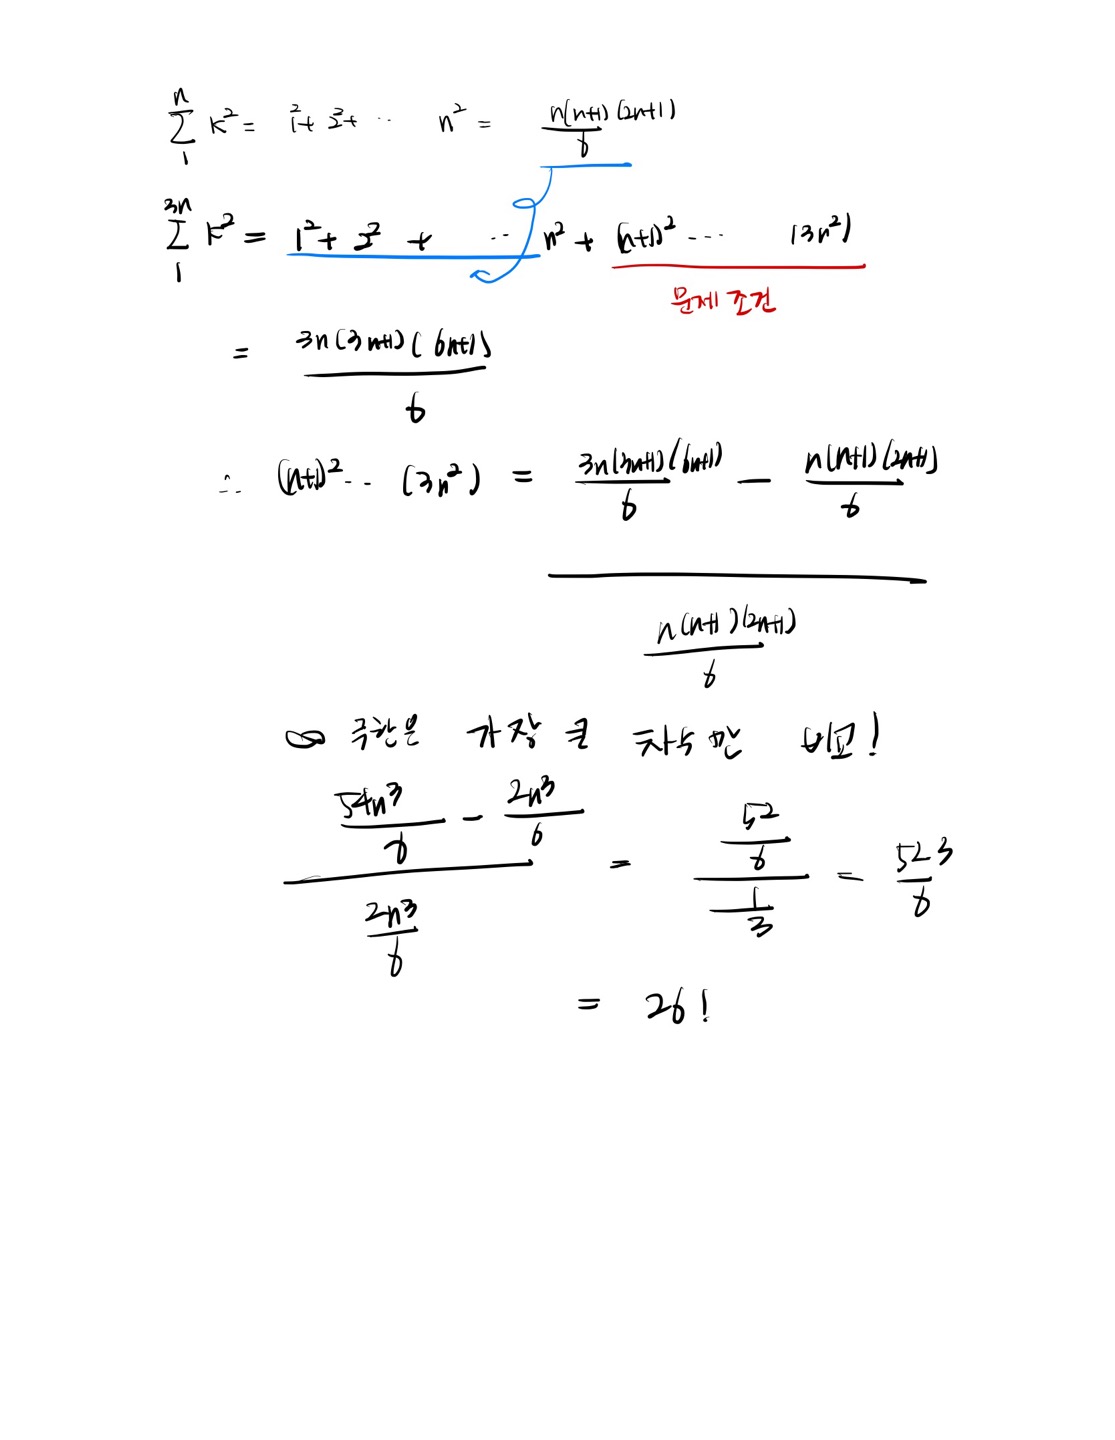 n
∑ k² = 1²+ 2²+ ‥ n² = n(n+1)(2n+1)/6
1
3n
∑ k² = 1²+ 2² + ‥ n² + (n+1)² ⋯ (3n²)
1
문제 조건
= 3n(3n+1)(6n+1)/6
∴ (n+1)² ‥ (3n²) = 3n(3n+1)(6n+1)/6 − n(n+1)(2n+1)/6
n(n+1)(2n+1)/6
∞ 극한은 가장 큰 차수만 비교!
54n³/6 − 2n³/6 = 52/6 = 52 3/6
2n³/6 1/3
= 26!